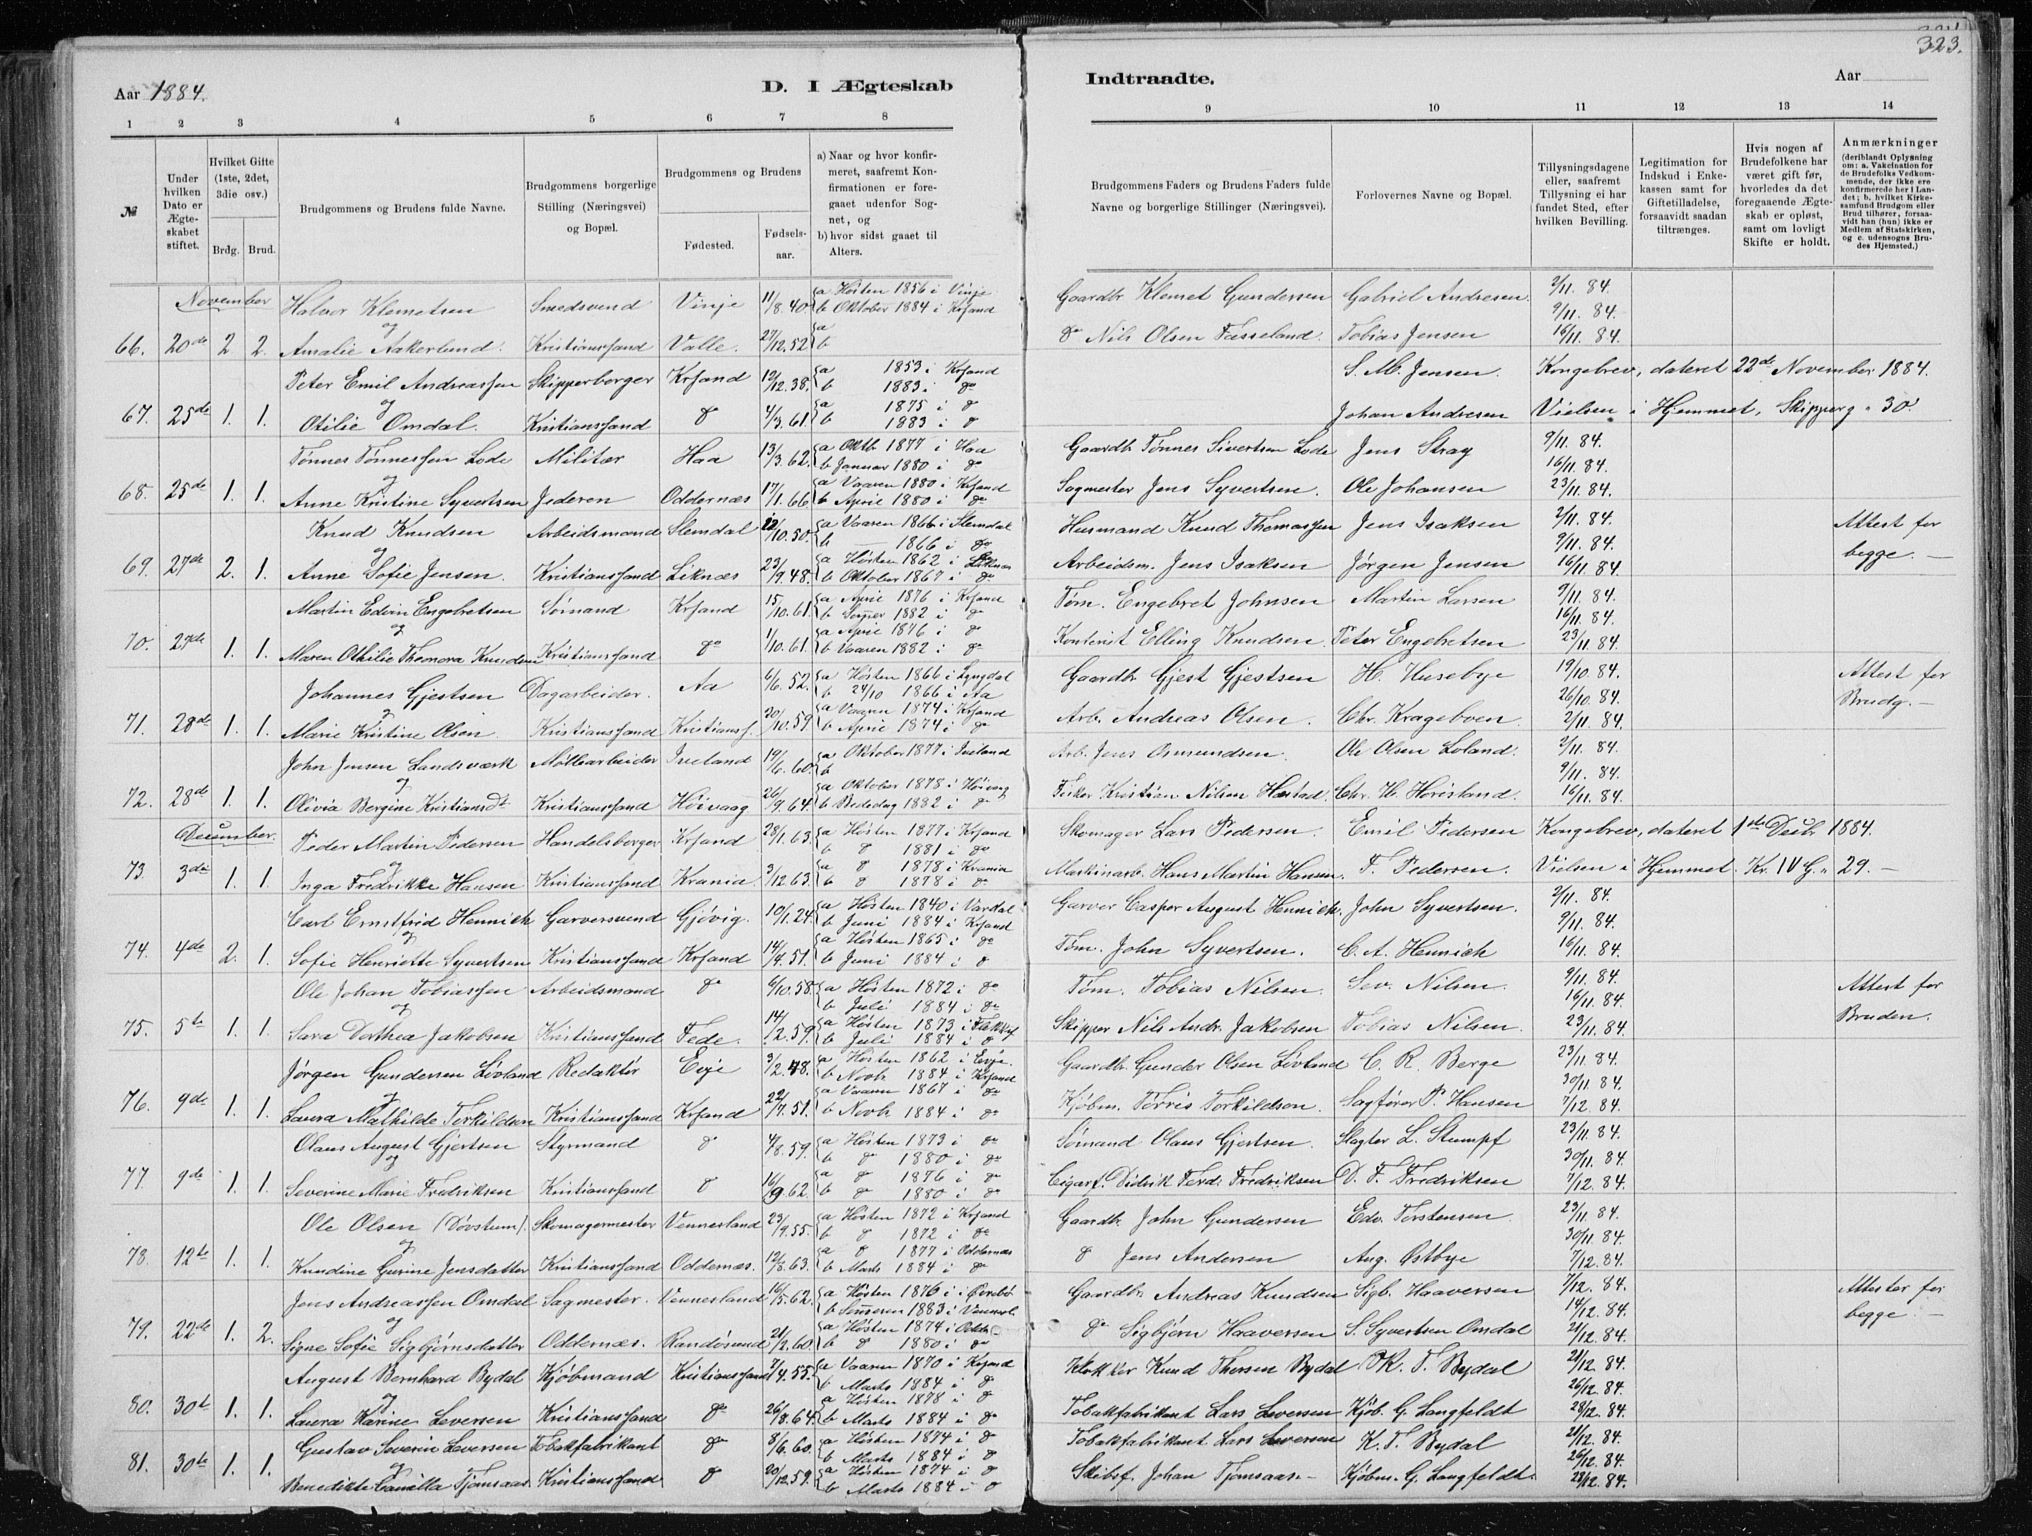 324.
323.
Aar 1884. D. I Ægteskab Indtraadte. Aar
1 2 3 4 5 6 7 8 9 10 11 12 13 14
№ Under hvilken Dato er Ægteskabet stiftet.
Hvilket Gifte (1ste, 2det, 3die osv.) Brdg. Brud.
Brudgommens og Brudens fulde Navne.
Brudgommens borgerlige Stilling (Næringsvei) og Bopæl.
Brudgommens og Brudens Fødested. Fødselsaar.
a) Naar og hvor konfirmeret, saafremt Konfirmationen er foregaaet udenfor Sognet, og
b) hvor sidst gaaet til Alters.
Brudgommens Faders og Brudens Faders fulde Navne og borgerlige Stillinger (Næringsvei).
Forlovernes Navne og Bopæl.
Tillysningsdagene eller, saafremt Tillysning ei har fundet Sted, efter hvilken Bevilling.
Legitimation for Indskud i Enkekassen samt for Giftetilladelse, forsaavidt saadan tiltrænges.
Hvis nogen af Brudefolkene har været gift før, hvorledes da det foregaaende Ægteskab er opløst, samt om lovligt Skifte er holdt.
Anmærkninger (deriblandt Oplysning om: a. Vakcination for de Brudefolks Vedkommende, der ikke ere konfirmerede her i Landet; b. hvilket Kirkesamfund Brudgom eller Brud tilhører, forsaavidt han (hun) ikke er Medlem af Statskirken, og c. udensogns Brudes Hjemsted.)
November Halvor Klemetsen Smedsvend Vinje 11/8.40. a Høsten 1856 i Vinje b Oktober 1884 i Krsand Gaardbr. Klemet Gundersen Gabriel Andresen 2/11. 84. 9/11. 84.
66. 20de 2 2. og Amalie Aakerlund. Kristianssand Valle. 27/12.52 a b do Nils Olsen Fasseland Tobias Jensen 16/11 84.
Peter Emil Andreassen Skipperborger Krsand 12/12.38. a 1853 i Krsand b 1883 i do S. M. Jensen. Kongebrev, dateret 22de November 1884.
67. 25de 1. 1. og Otilie Omdal. Kristianssand do 4/3.61. a 1875 i do b 1883 i do Johan Andresen Vielsen i Hjemmet, Skipperg. 30.
Tønnes Tønnessen Lode Militær Haa 13/3.62. a Oktb 1877 i Haa b Januar 1880 i do Gaardbr. Tønnes Sivertsen Lode Jens Stray 9/11. 84. 16/11. 84.
68. 25de 1. 1. og Anne Kristine Syvertsen Jederen Oddernæs 17/1.66. a Vaaren 1880 i Krsand b April 1880 i do Sagmester Jens Syvertsen. Ole Johansen 23/11. 84.
Knud Knudsen Arbeidsmand Slemdal 12/10.50. a Vaaren 1866 i Slemdal b — 1866 i do Husmand Knud Thomassen Jens Isaksen 2/11. 84. 9/11. 84. Attest for begge. —
69. 27de 2. 1. og Anne Sofie Jensen. Kristianssand Liknæs 23/9.48. a Høsten 1862 i Liknæs b Oktober 1867 i do Arbeidsm. Jens Isaksen Jørgen Jensen 16/11. 84.
Martin Edvin Engebretsen Sømand Krsand 15/10.61. a April 1876 i Krsand b Somer 1882 i do Tøm. Engebret Johnsen Martin Larsen 9/11. 84. 16/11. 84.
70. 27de 1. 1. og Maren Othilie Theonora Knudsen Kristianssand do 1/10.61. a April 1876 i do b Vaaren 1882 i do Elling Knudsen Peter Engebretsen 23/11. 84.
Johannes Gjestsen Dagarbeider. Aa 6/6.52. a Høsten 1866 i Lyngdal b 24/10 1866 i Aa Gaardbr. Gjest Gjestsen H. Husebye 19/10. 84. 26/10. 84. Attest for Brudg. —
71. 28de 1. 1. og Marie Kristine Olsen Kristianssand Kristianss. 20/10.59. a Vaaren 1874 i Krsand b April 1874 i do Arb. Andreas Olsen. Chr. Krageboen. 2/11. 84.
John Jensen Landsværk Møllearbeider Iveland 19/6.60. a Oktober 1877 i Iveland b Arb. Jens Osmundsen. Ole Olsen Loland. 2/11. 84. 9/11. 84.
72. 28de 1. 1. og Olivia Bergine Kristiansdt. Kristianssand Høivaag 26/9.64. a Oktober 1878 i Høivaag b Bededag 1882 i do Fisker Kristian Nilsen Hæstad. Chr. Th. Heresland. 16/11. 84.
December. Peder Martin Pedersen Handelsborger Krsand 28/1.63. a Høsten 1877 i Krsand b do 1881 i do Skomager Lars Pedersen. Emil Pedersen Kongebrev, dateret 1ste Decb. 1884.
73. 3de 1. 1. og Inga Fredrikke Hansen Kristianssand Krania. 3/12.63. a do 1878 i Krania b do 1878 i do Maskinarb. Hans Martin Hansen. F. Pedersen. Vielsen i Hjemmet. Kr. IV G. 29. —
Carl Ernstfrid Hennich Garversvend Gjøvig. 10/1.24. a Høsten 1840 i Vardal b Juni 1884 i Krsand Garver Casper August Hennich. John Syvertsen. 2/11. 84. 9/11. 84.
74. 4de 2. 1. og Sofie Henriette Syvertsen Kristianssand Krsand 14/4.51. a Høsten 1865 i do b Juni 1884 i do Tøm. John Syvertsen. C. A. Hennich 16/11 84.
Ole Johan Tobiassen Arbeidsmand do 6/10.58. a Høsten 1872 i do b Juli 1884 i do Tøm. Tobias Nilsen. Sev. Nilsen. 9/11. 84. 16/11. 84. Attest for Bruden.
75. 5te 1. 1. og Sara Dorthea Jakobsen Kristianssand Fede. 14/2.59. a Høsten 1873 i Flekkef b Juli 1884 i do Skipper Nils Andr. Jakobsen Tobias Nilsen. 23/11. 84.
Jørgen Gundersen Løvland Redaktør Evje 3/2.48. a Høsten 1862 i Evje b Novb. 1884 i Krsand Gaardbr. Gunder Olsen Løvland C. R. Berge 23/11. 84. 30/11. 84.
76. 9de 1. 1. og Laura Mathilde Terkildsen Kristianssand Krsand 22/7.51. a Vaaren 1867 i do b Novb. 1884 i do Kjøbm. Tørris Torkildsen. Sagfører P. Hansen 7/12. 84.
Olaus August Gjertsen Styrmand do 4/8.59. a Høsten 1873 i do b do 1880 i do Sømand Olaus Gjertsen. Slagter L. Stumpf 23/11. 84. 30/11. 84.
77. 9de 1. 1. og Severine Marie Fredriksen Kristianssand do 16/9.62. a do 1876 i do b do 1880 i do Cigarf. Didrik Ferd. Fredriksen D. F. Fredriksen 7/12. 84.
Ole Olsen (Døvstum). Skomagermester Vennerland 23/9.55. a Høsten 1872 i Krsand b do 1872 i do Gaardbr. John Gundersen Edv. Torstensen. 23/11. 84. 30/11. 84.
78. 12te 1. 1. og Knudine Gurine Jensdatter Kristianssand Oddernæs. 12/8.63. a do 1877 i Oddernæs b Marts 1884 i do do Jens Andersen Aug. Østbye 7/12. 84.
Jens Andreassen Omdal Sagmester. Vennersland 16/5.62. a Høsten 1876 i Øvrebø b Sommeren 1883 i Vennersl. Gaardbr. Andreas Knudsen Sigb. Haaversen. 7/12. 84. 14/12. 84. Attester for begge. —
79. 22de 1. 2. og Signe Sofie Sigbjørnsdatter Oddernæs. Randøsund 21/2.60. a Høsten 1874 i Odder. b do 1880 i do do Sigbjørn Haaversen. S. Syvertsen Omdal 21/12. 84.
August Bernhard Bydal Kjøbmand Kristianssand 7/4.55. a Vaaren 1870 i Krsand b Marts 1884 i do Klokker Knud Thorsen Bydal K. T. Bydal 21/12. 84. 26/12. 84.
80. 30te 1. 1. og Laura Karine Leversen Kristianssand do 26/8.64. a Høsten 1878 i do b Marts 1884 i do Tobakfabrikant Lars Leversen Kjøb. G. Langfeldt 28/12. 84.
Gustav Severin Leversen Tobakfabrikant do 8/6.60. a Høsten 1874 i do b Marts 1884 i do Tobakfabrikant Lars Leversen K. T. Bydal 21/12. 84. 26/12. 84.
81. 30te 1. 1. og Benedikte Camilla Tjomsaas Kristianssand. do 20/12.59. a Høsten 1874 i do b Marts 1884 i do Skibsf. Johan Tjomsaas. — Kjøbm. G. Langfeldt. 28/12. 84.